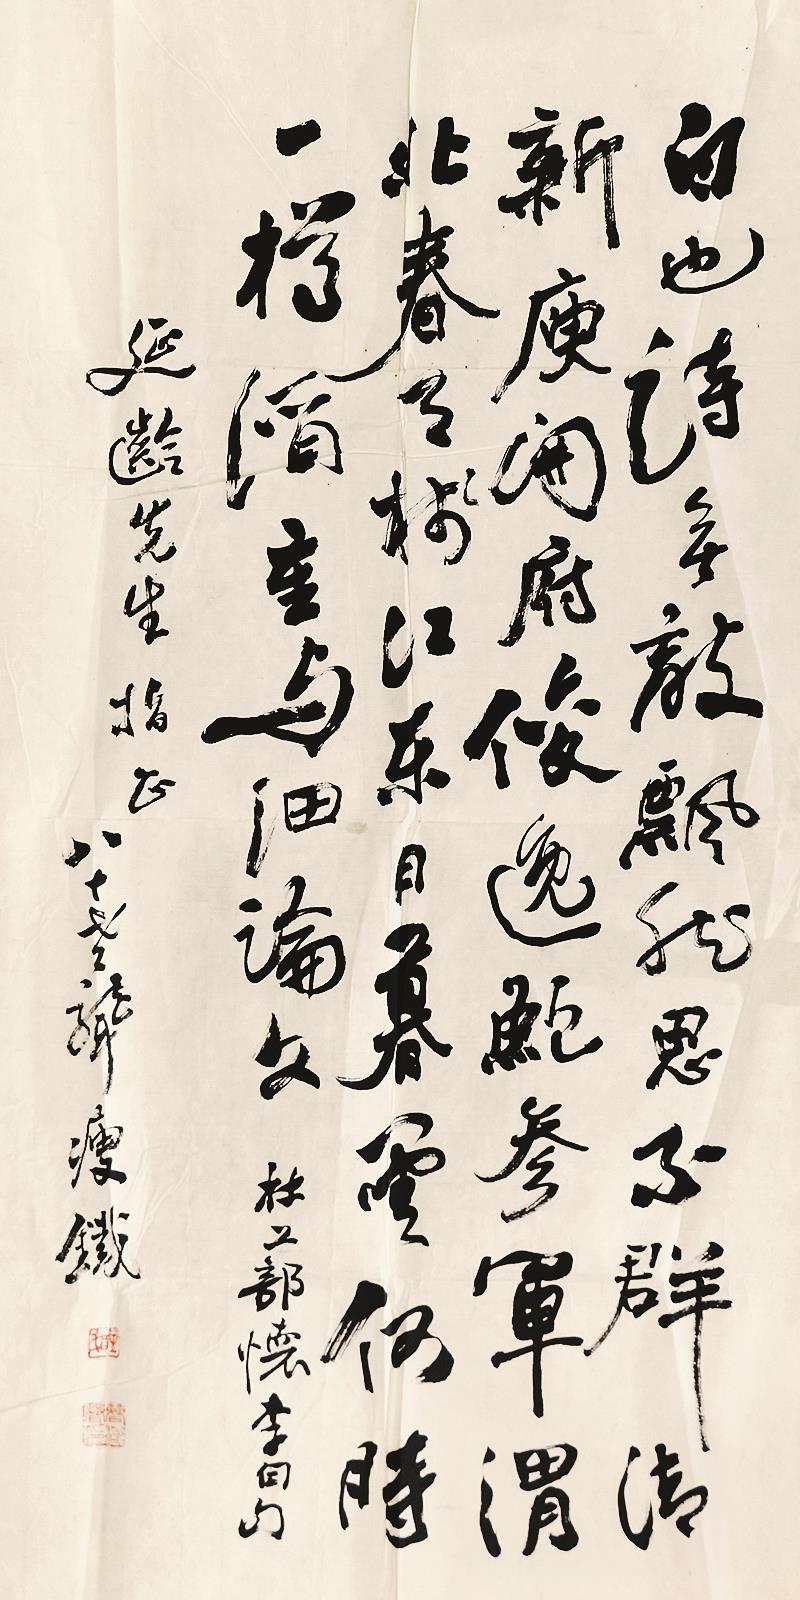 白也詩無敵飄然思不群清
新庾開府俊逸鮑參軍渭
北春天樹江東日暮雲何時
一樽酒重与細論文 杜工部懷李白句
延齡先生指正
八十老瘦鐵